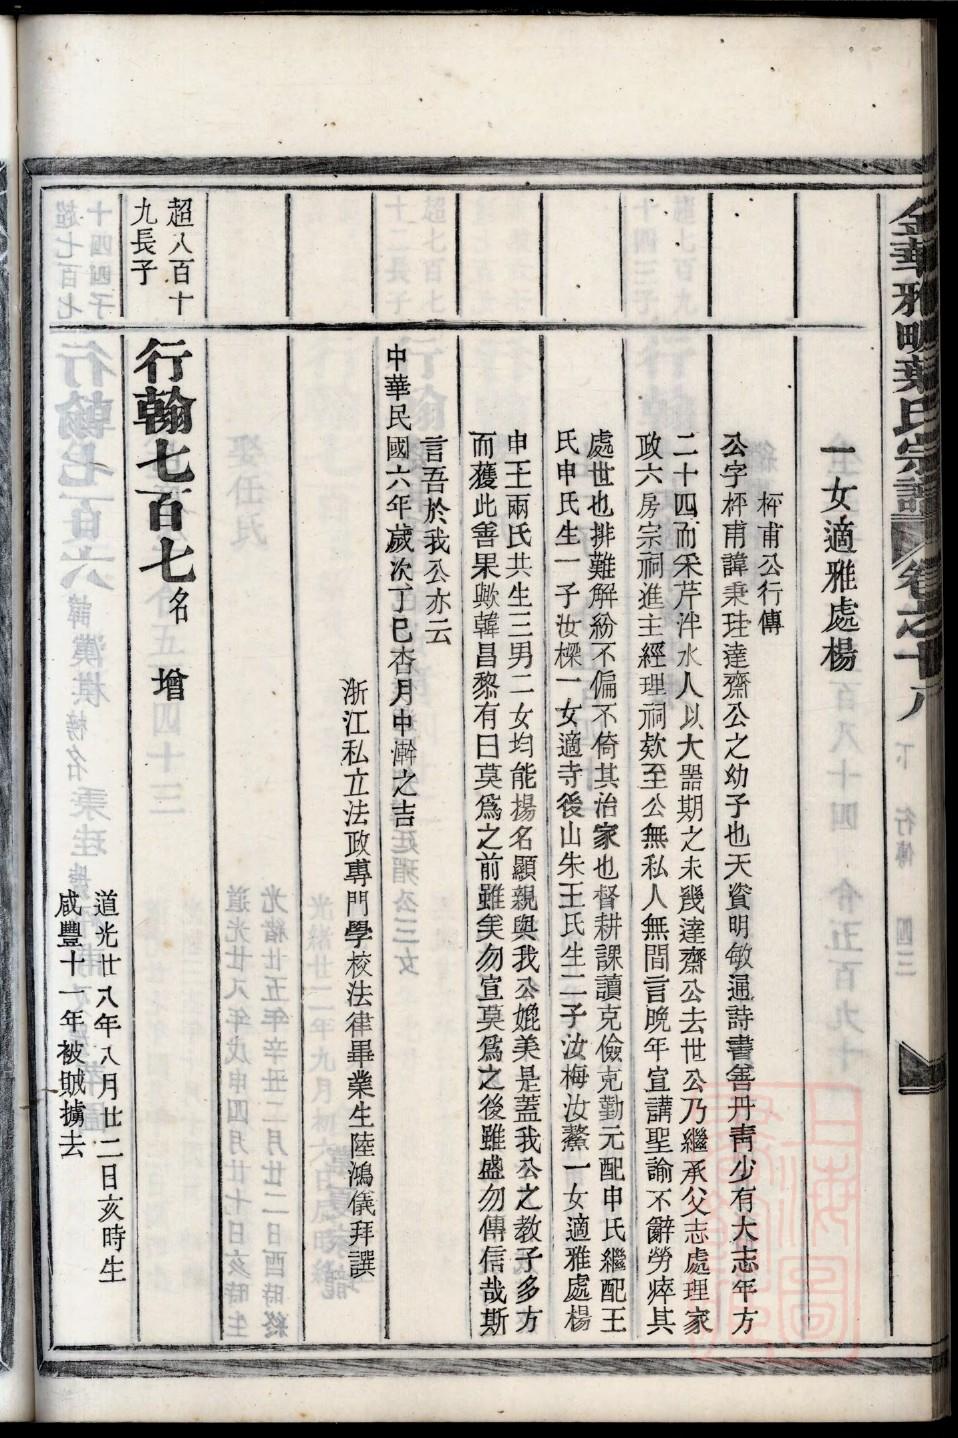 金華雅畈葉氏宗譜 卷之十八
一女適雅處楊
枰甫公行傳
公字枰甫諱秉珪達齋公之幼子也天資明敏通詩書善丹青少有大志年方
二十四而采芹泮水人以大器期之未幾達齋公去世公乃繼承父志處理家
政六房宗祠進主經理祠欵至公無私人無間言晚年宣講聖諭不辭勞瘁其
處世也排難解紛不偏不倚其治家也督耕課讀克儉克勤元配申氏繼配王
氏申氏生一子汝樑一女適寺後山朱王氏生二子汝梅汝鰲一女適雅處楊
申王兩氏共生三男二女均能揚名顯親與我公媲美是蓋我公之教子多方
而獲此善果歟韓昌黎有曰莫爲之前雖美勿宣莫爲之後雖盛勿傳信哉斯
言吾於我公亦云
中華民國六年歲次丁巳杏月中澣之吉
浙江私立法政專門學校法律畢業生陸鴻儀拜譔
超八百十
九長子
行翰七百七 名 增
道光廿八年八月廿二日亥時生
咸豐十一年被賊擄去